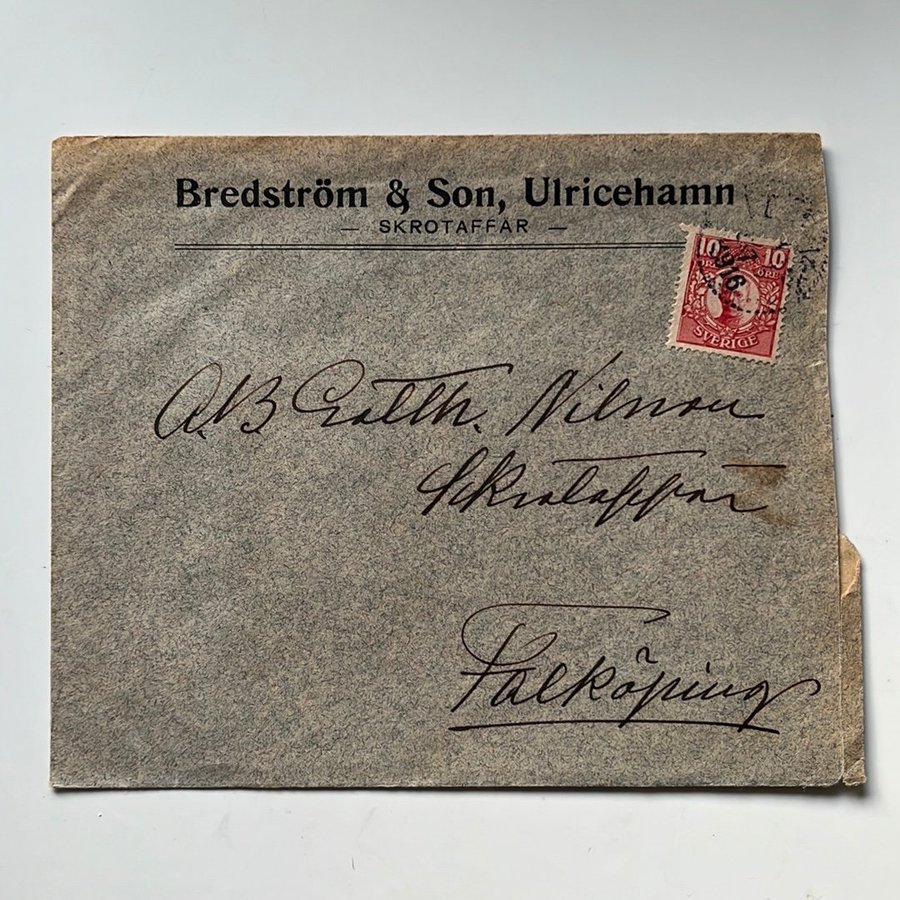 Bredström & Son, Ulricehamn
— SKROTAFFÄR —
10 10
ÖRE ÖRE
1916
SVERIGE
A.B Gotth. Nilsson
Skrotaffär
Falköping